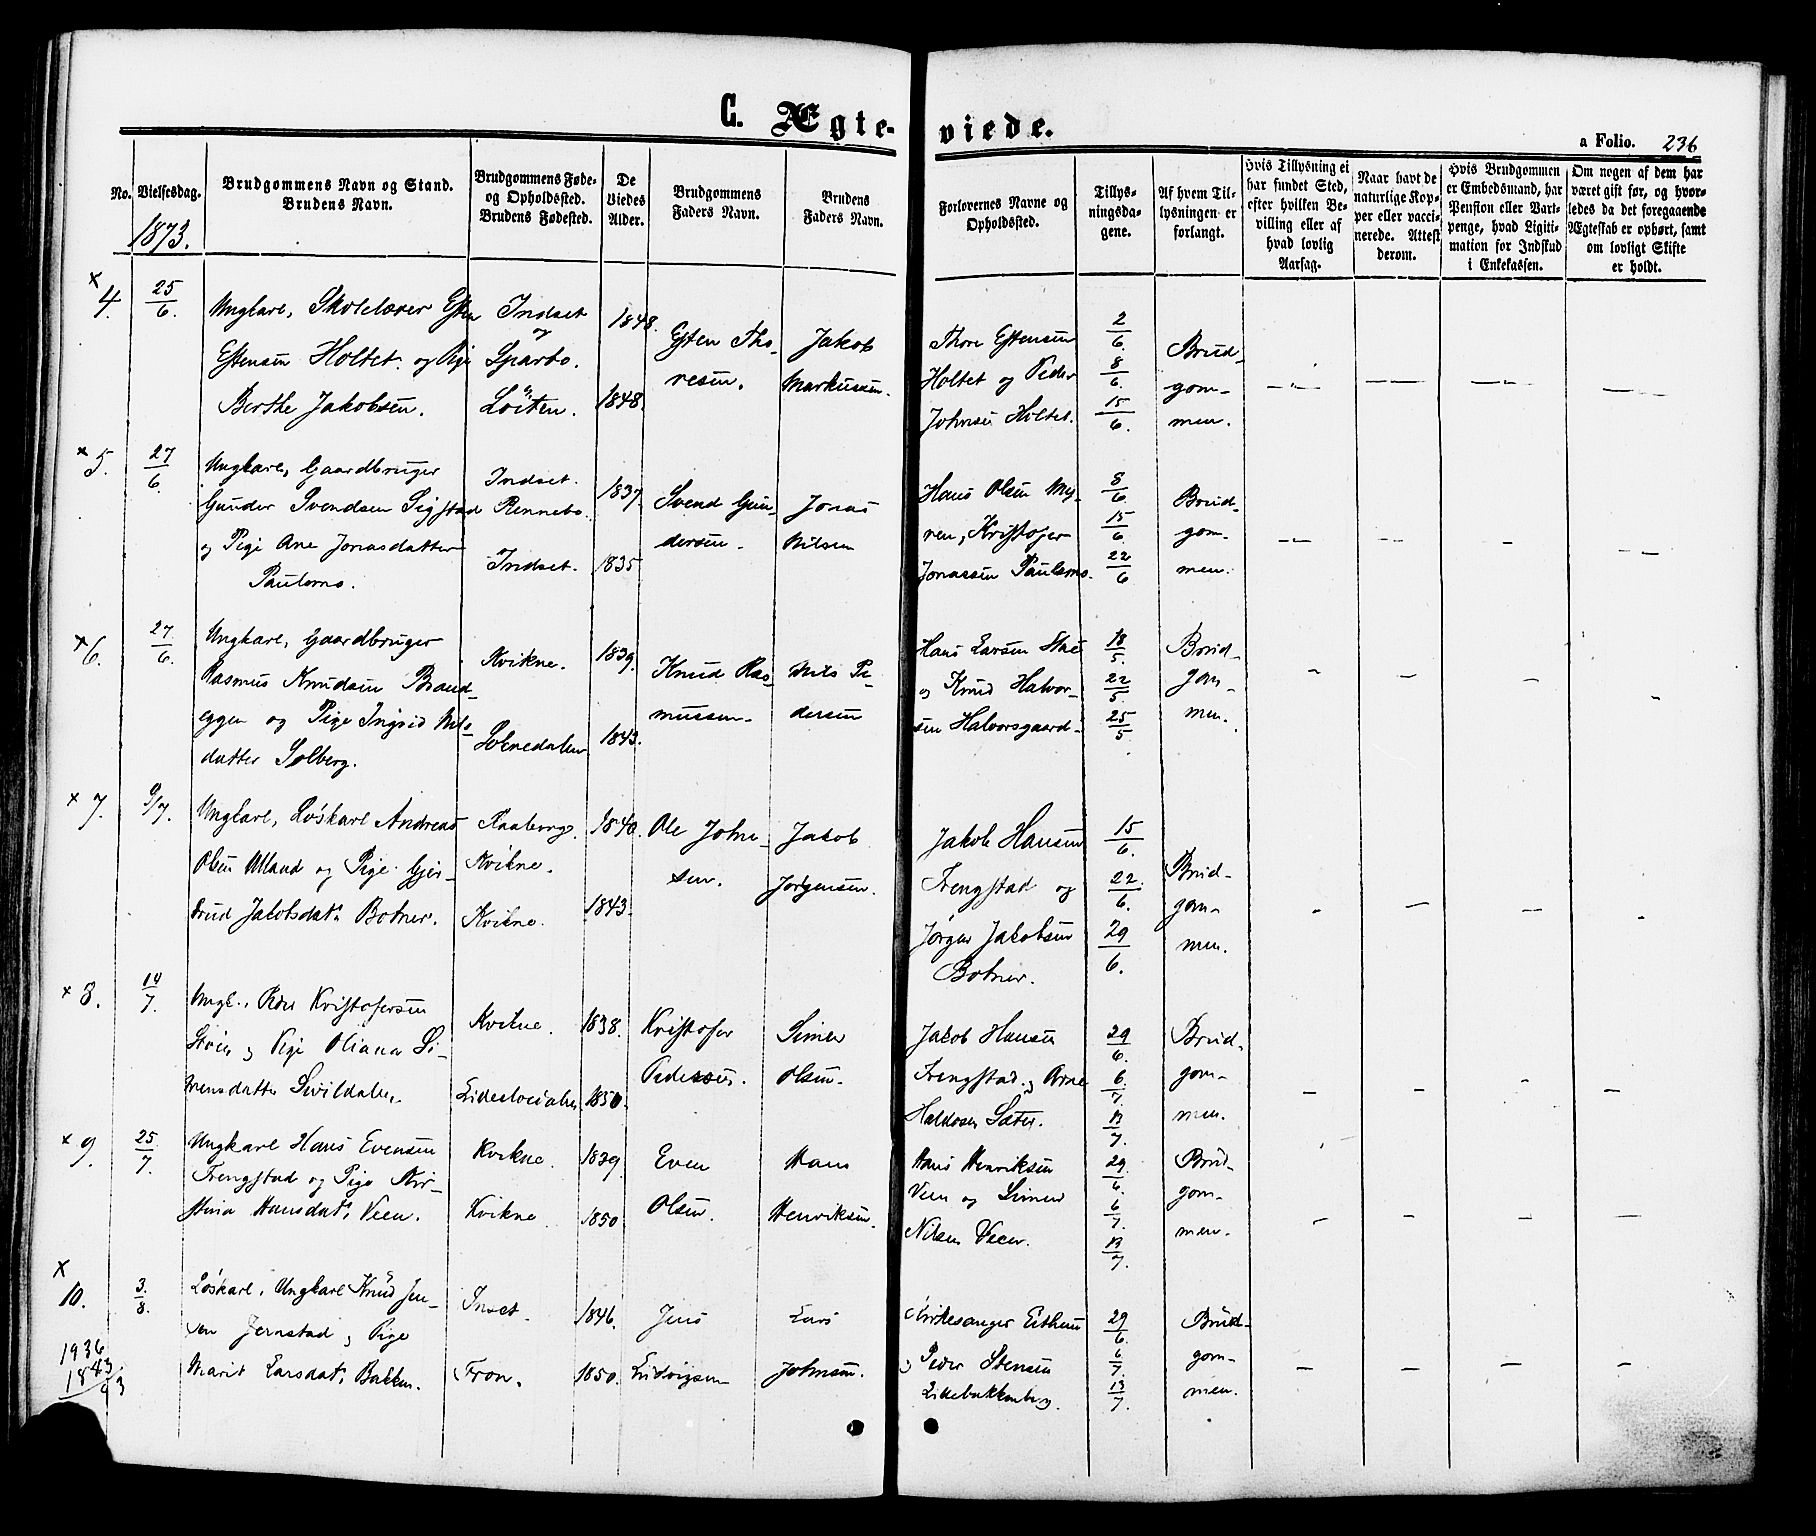 C. Ægteviede.
a Folio. 236
No.
Vielsesdag.
Brudgommens Navn og Stand.
Brudens Navn.
Brudgommens Føde-
og Opholdssted.
Brudens Fødested.
De
Viedes
Alder.
Brudgommens
Faders Navn.
Brudens
Faders Navn.
Forlovernes Navne og
Opholdssted.
Tillys-
ningsda-
gene.
Af hvem Til-
lysningen er
forlangt.
Hvis Tillysning ei
har fundet Sted,
efter hvilken Be-
villing eller af
hvad lovlig
Aarsag.
Naar havt de
naturlige Kop-
per eller vacci-
nerede. Attest
derom.
Hvis Brudgommen
er Embedsmand, har
Pension eller Vart-
penge, hvad Ligiti-
mation for Indskud
i Enkekassen.
Om nogen af dem har
været gift før, og hvor-
ledes da det foregaaende
Ægteskab er ophørt, samt
om lovligt Skifte
er holdt.
1873.
x 4. 25/6.
Ungkarl, Skolelærer Esten
Estensen Holtet og Pige
Berthe Jakobsen.
Indset
og
Sparbo.
Löiten.
1848.
1848.
Esten Tho-
resen.
Jakob
Markussen.
Thore Estensen
Holtet og Peder
Johnsen Holtet.
2/6
8/6.
15/6.
Brud-
gom-
men.
x 5. 27/6.
Ungkarl, Gaardbruger
Gunder Svendsen Sigstad
og Pige Ane Jonasdatter
Paulsmo.
Indset.
Rennebo.
Indset.
1837.
1835
Svend Gun-
dersen.
Jonas
Nilsen
Hans Olsen My-
ren, Kristofer
Jonassen Paulsmo.
8/6
15/6.
22/6
Brud-
gom-
men.
x 6. 27/6.
Ungkarl, Gaardbruger
Rasmus Knudsen Brand-
eggen og Pige Ingrid Nils-
datter Solberg.
Kvikne.
Solnedalen
1839.
1843.
Knud Ras-
mussen.
Nils Pe-
dersen
Hans Larsen Stae
og Knud Halvor-
sen Halvorsgaard
18/5.
22/5.
25/5
Brud-
gom-
men.
x 7. 9/7.
Ungkarl, Løskarl Andreas
Olsen Utland og Pige Gjer-
trud Jakobsdatr Botner.
Kvikne.
Kvikne.
1840.
1843.
Ole John-
sen.
Jakob
Jørgensen.
Jakob Hansen
Frengstad og
Jørgen Jakobsen
Botner.
15/6.
22/6.
29/6.
Brud-
gom-
men.
x 8. 14/7.
Ungk., Peder Kristofersen
og Pige Oliana Si-
mensdatter
Kvikne.
1838.
1850.
Kristofer
Pedersen.
Simen
Olsen.
Jakob Hansen
Frengstad og Arne
Haldosen Sæter.
29/6.
6/7.
13/7.
Brud-
gom-
men.
x 9. 25/7.
Ungkarl Hans Evensen
Frengstad og Pige Kir-
stina Hansdatr Veen.
Kvikne.
Kvikne.
1839.
1850
Even
Olsen.
Hans
Henriksen.
Hans Henriksen
Veen og Simen
Nilsen Veen.
29/6.
6/7.
13/7
Brud-
gom-
men.
x 10. 3/8.
Løskarl, Ungkarl Knud Jen-
sen Jernstad og Pige
Marit Larsdatr Bakken.
Inset.
Fron.
1846.
1850.
Jens
Ludvigsen
Lars
Johnsen.
Kirkesanger Eithun
og Peder Stensen
29/6
6/7.
13/7.
Brud-
gom-
men.
1936
1843
93